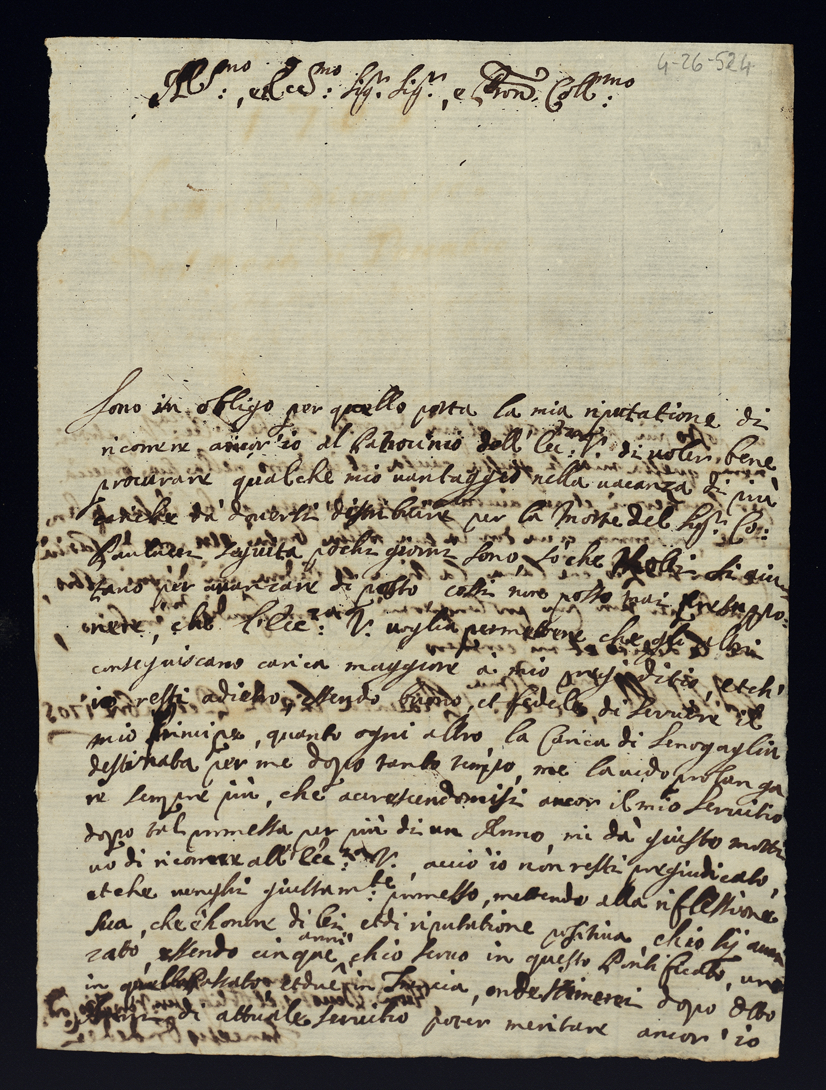 4-26-524
Ill.mo, et Ecc.mo Sig.r Sig.r, e Pron. Coll.mo
Sono in obligo per quello porta la mia riputatione di
ricorrere ancor' io al Patrocinio dell' Ecc.za V. di voler bene
procurare qualche mio vantaggio nella vacanza di più
cariche da doversi distribuire per la Morte del Sig.r Co:
seguita pochi giorni sono, so che Molti si aiu-
tano per avanzare di posto cossì non posso mai presuppo-
nere, che l'Ecc.za V. voglia permettere che gli altri
conseguiscano carica maggiore a mio pregiuditio, et ch'
io resti adietro, essendo buono, et fedele di servire il
mio Principe, quanto ogni altro la Carica di Senogaglia
destinata per me dopo tanto tempo, me la vedo prolonga
re sempre più, che accrescendomisi ancor il mio servitio
dopo tal promessa per più di un Anno, mi dà giusto motti
vo di ricorrere all' Ecc.za V., acciò io non resti pregiudicato,
et che venghi giustam.te promosso, mettendo alla riflessione
sua, che è honore di lei et di riputatione positiva, ch io sij avan
zato, essendo cinque anni ch io servo in questo Pontificato, uno
in quello Passato et due in, onde stimerei dopo otto
Anni di attuale servitio poter meritare ancor' io